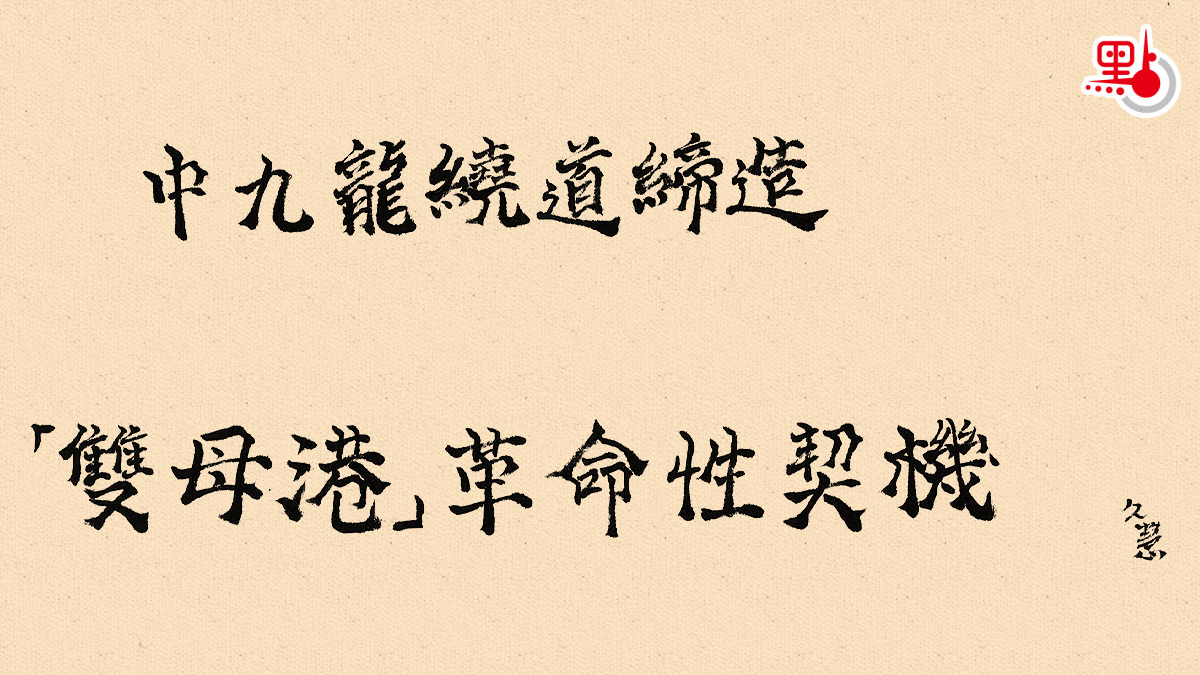 點
中九龍繞道締造
「雙母港」革命性契機
久慧